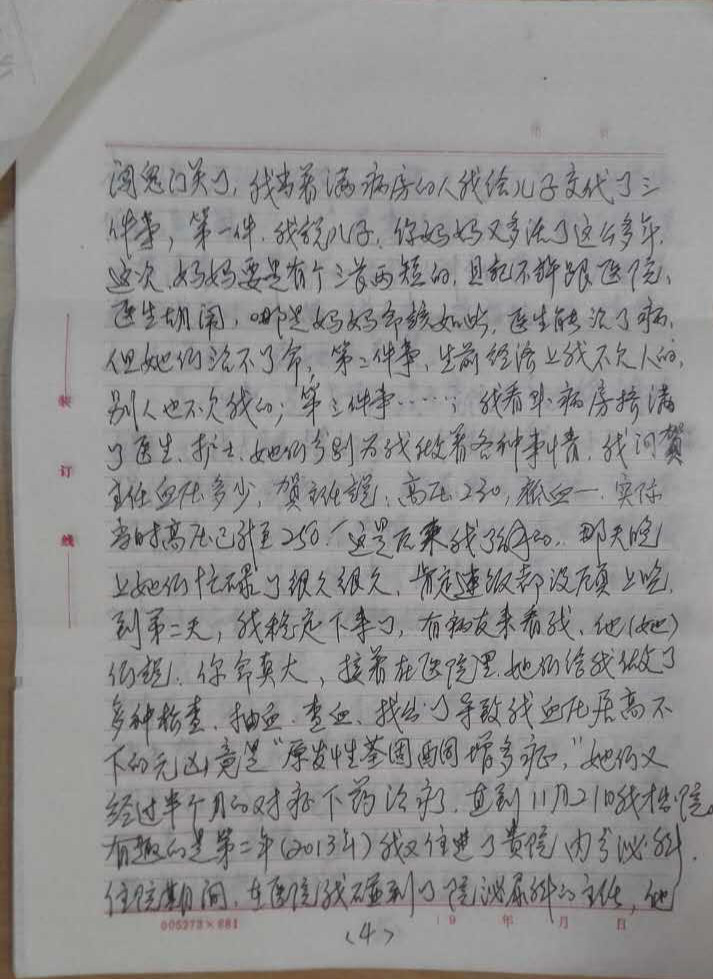 闯鬼门关了，我当着满病房的人我给儿子交代了三
件事，第一件．我说儿子，你妈妈又多活了这么多年．
这次，妈妈要是有个三长两短的，且记不许跟医院、
医生胡闹，那是妈妈命该如此，医生能治了病、
但她们治不了命，第二件事、生前经济上我不欠人的，
别人也不欠我的；第三件事……；我看到病房挤满
了医生、护士、她们分别为我做着各种事情．我问贺
主任血压多少，贺主任说：高压230，实际
当时高压已升至250．（这是后来我了解的．那天晚
上她们忙碌了很久很久，肯定连饭都没顾上吃．
到第二天，我稳定下来了，有病友来看我、他（她）
们说．你命真大，接着在医院里．她们给我做了
多种检查．抽血．查血、找出了导致我血压居高不
下的元凶竟是“原发性萘固酮增多症，”她们又
经过半个月的对症下药治疗．直到11月21日我出院。
有趣的是第二年（2013年）我又住进了贵院内分泌科．
住院期间，在医院我碰到了院泌尿科的主任，他
装
订
线
005273×681
19 年 月 日
〈4〉